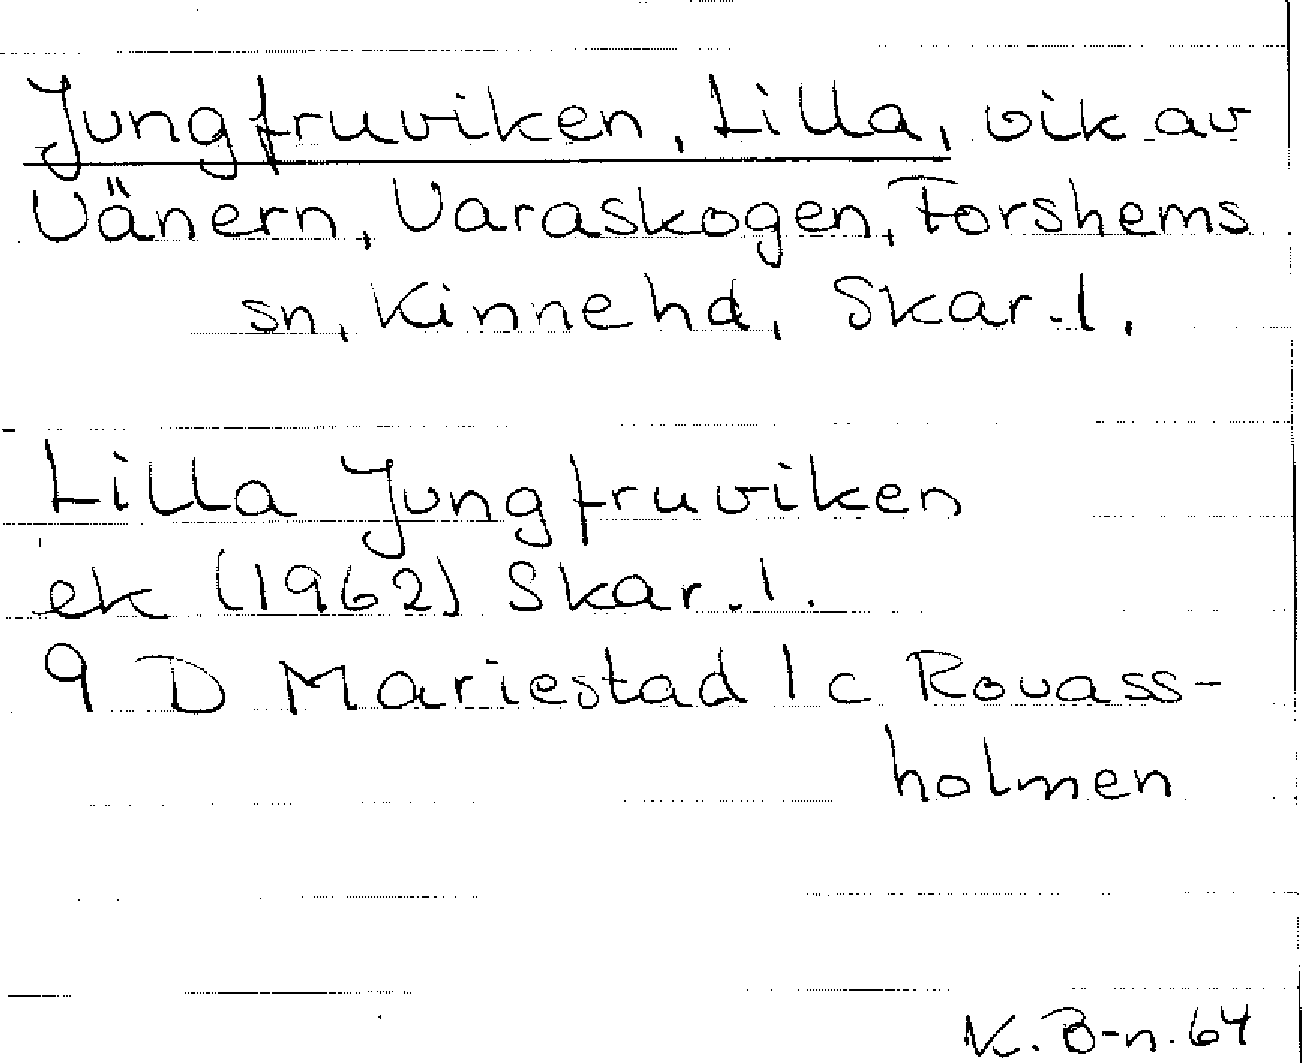 Jungfruviken, Lilla, vik av
Vänern, Varaskogen, Forshems
sn, Kinne hd, Skar. l.
Lilla Jungfruviken
ek (1962) Skar. l.
9 D Mariestad 1 c Rovass-
holmen
K. B-n. 64